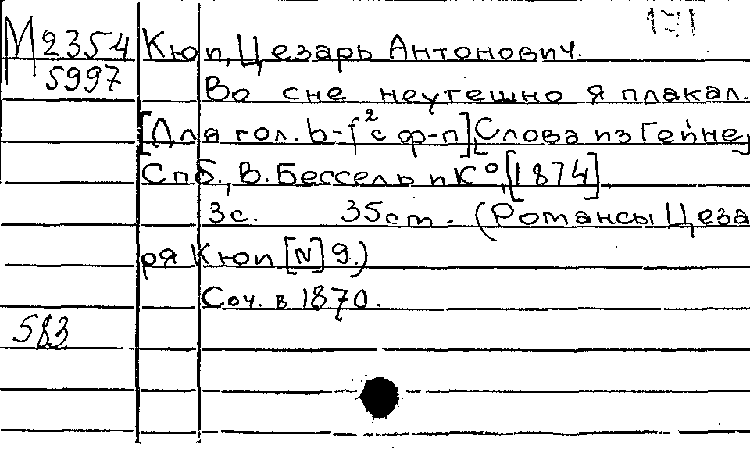 М 2354 Кюи, Цезарь Антонович.
5997 Во сне неутешно я плакал.
[Для гол. b-f² с ф-п] [Слова из Гейне]
Спб., В. Бессель и К°, [1874].
3с. 35 см. (Романсы Цеза
ря Кюи [N] 9.)
Соч. в 1870.
583